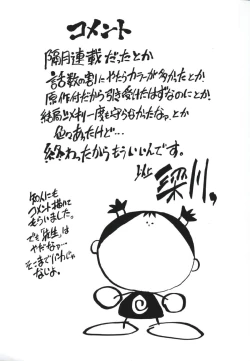 コメント
隔月連載だったとか
話数の割にやたらカラーが多かったとか
原作付だから引き受けたはずなのにとか
結局〆切り一度も守らなかったなァとか
色々あったけど…
終わったからもういいんです。
梁川
知人にも
コメント描いて
もらいました。
でも「先生」は
やだなァ…
そこまで
なじょ。